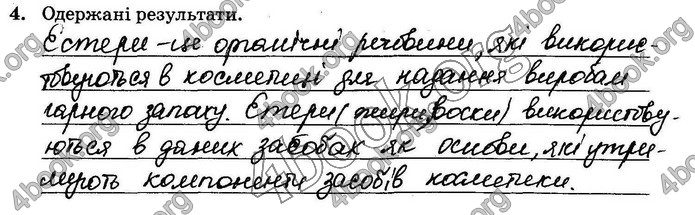 4. Одержані результати.
Естери – це органічні речовини, які викорис-
товуються в косметиці для надання виробам
гарного запаху. Естери (жири, воски) використову-
ються в даних засобах як основи, які утри-
мують компоненти засобів косметики.
4book.org